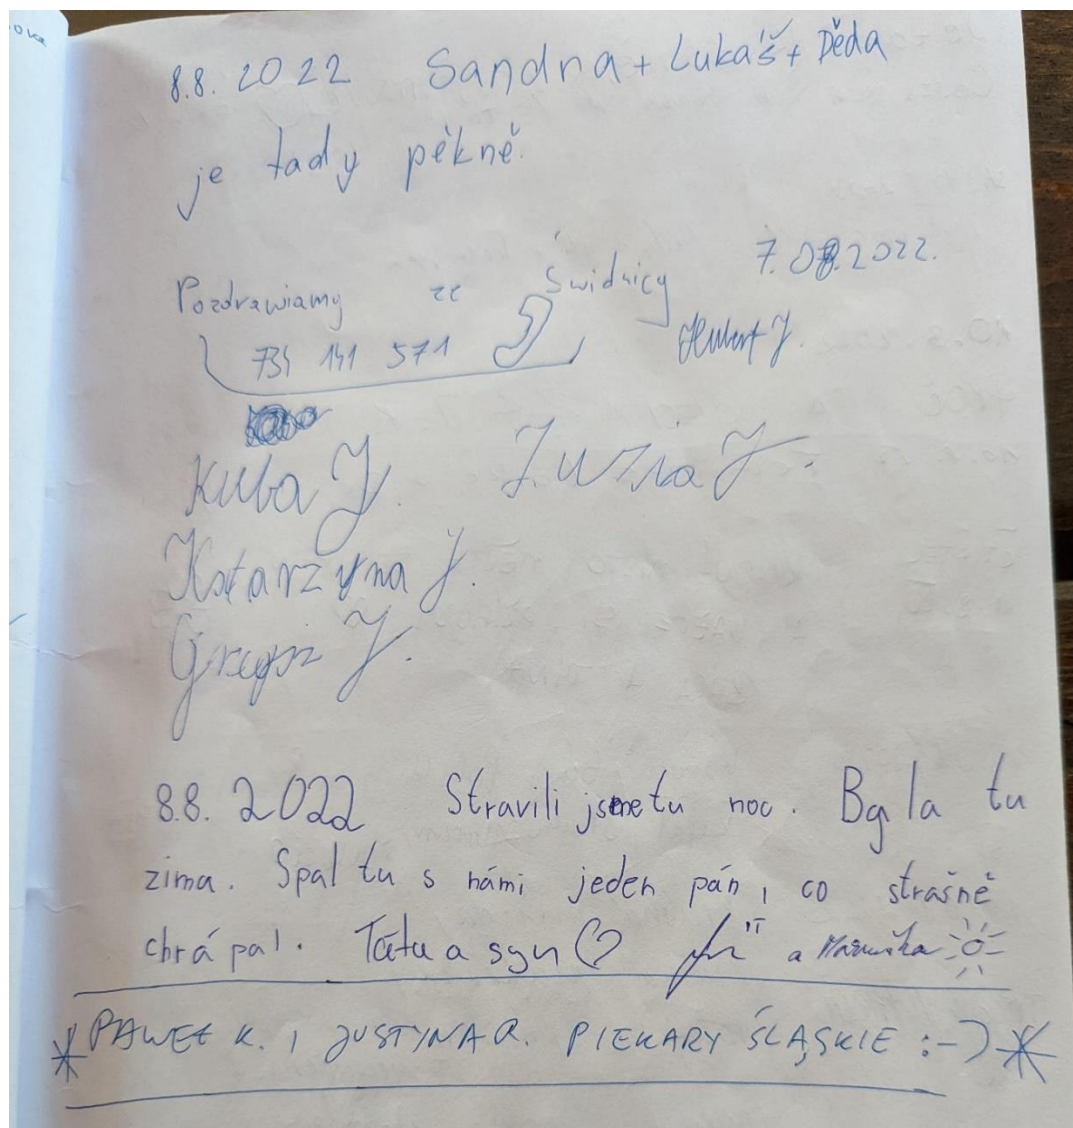 8.8. 2022 Sandra + Lukáš + Děda
je tady pěkně.
7.08.2022.
Pozdrawiamy ze Świdnicy
734 141 571 Hubert J.
Kuba J. Zuzia J.
Katarzyna J.
J.
8.8. 2022 Stravili jsme tu noc. Byla tu
zima. Spal tu s námi jeden pán, co strašně
chrápal. Táta a syn a Maruška
PAWEŁ K. I JUSTYNA R. PIEKARY ŚLĄSKIE :-)